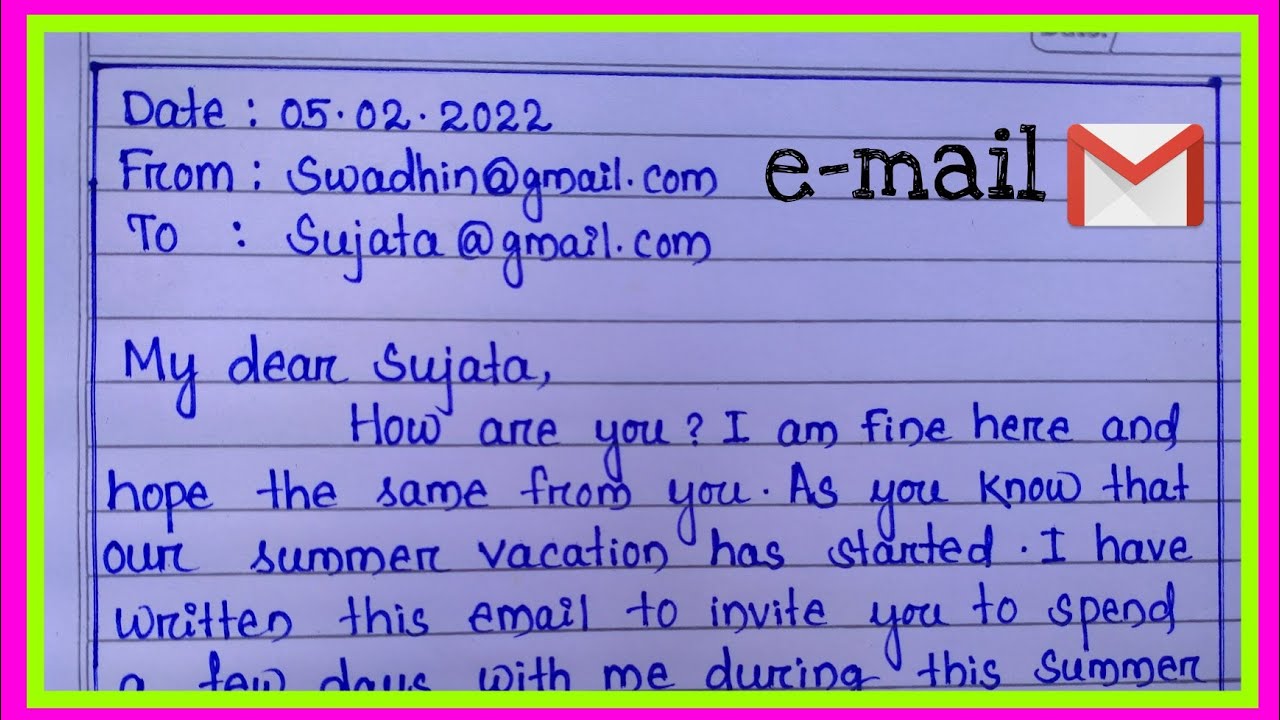 Date:
Date : 05.02.2022
From : Swadhin@gmail.com
e-mail
To : Sujata@gmail.com
My dear Sujata,
How are you? I am fine here and
hope the same from you. As you know that
our summer vacation has started. I have
written this email to invite you to spend
a few days with me during this summer